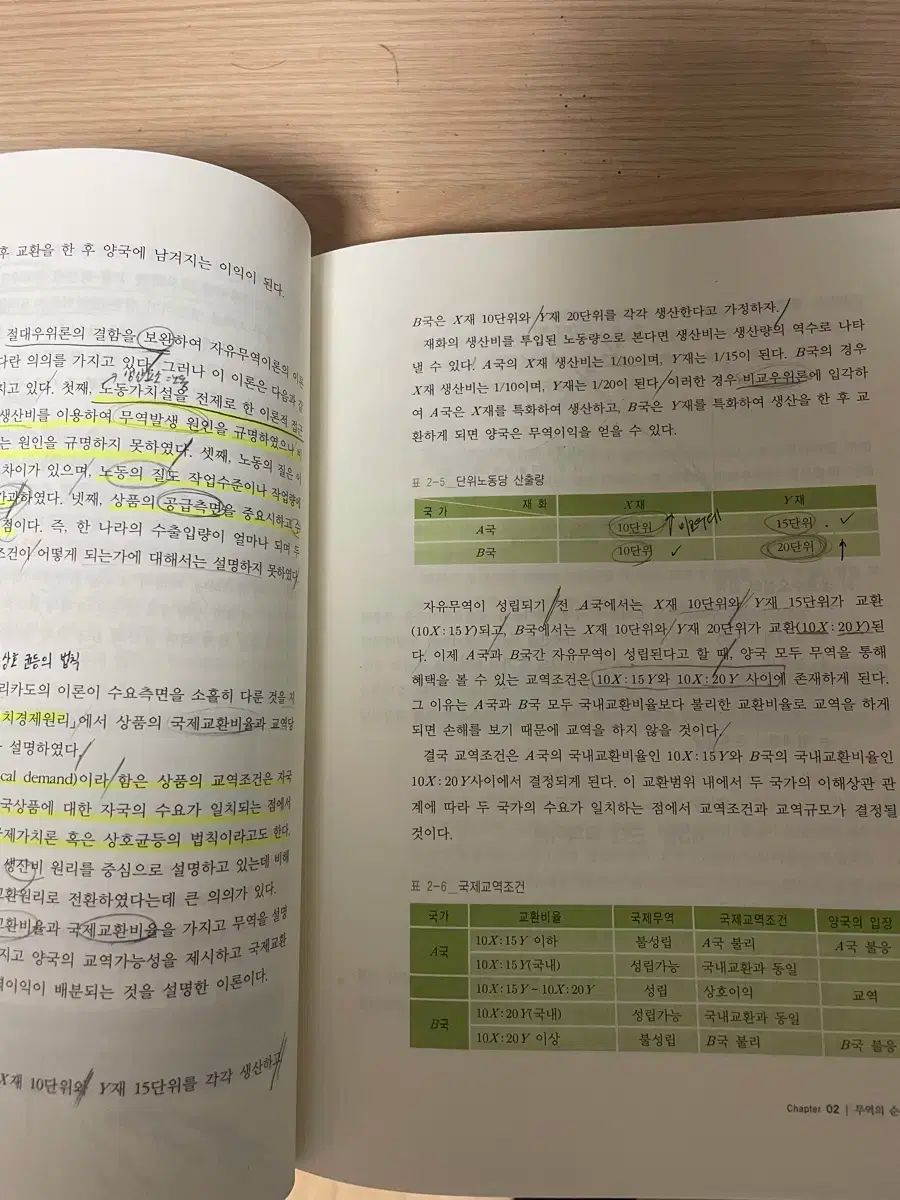 후 교환을 한 후 양국에 남겨지는 이익이 된다.
절대우위론의 결함을 보완하여 자유무역이론의
다란 의의를 가지고 있다. 그러나 이 이론은 다음과 같
지고 있다. 첫째, 노동가치설을 전제로 한 이론적 접근
생산비를 이용하여 무역발생 원인을 규명하였으나
는 원인을 규명하지 못하였다. 셋째, 노동의 질은
차이가 있으며, 노동의 질도 작업수준이나 작업량에
간과하였다. 넷째, 상품의 공급측면을 중요시하고
점이다. 즉, 한 나라의 수출입량이 얼마나 되며 두
조건이 어떻게 되는가에 대해서는 설명하지 못하였다
상호 균등의 법칙
리카도의 이론이 수요측면을 소홀히 다룬 것을 지
치경제원리」에서 상품의 국제교환비율과 교역당
설명하였다.
cal demand)이라 함은 상품의 교역조건은 자국
국상품에 대한 자국의 수요가 일치되는 점에서
국제가치론 혹은 상호균등의 법칙이라고도 한다.
생산비 원리를 중심으로 설명하고 있는데 비해
교환원리로 전환하였다는데 큰 의의가 있다.
교환비율과 국제교환비율을 가지고 무역을 설명
지고 양국의 교역가능성을 제시하고 국제교환
역이익이 배분되는 것을 설명한 이론이다.
X재 10단위와 Y재 15단위를 각각 생산하고
B국은 X재 10단위와 Y재 20단위를 각각 생산한다고 가정하자.
재화의 생산비를 투입된 노동량으로 본다면 생산비는 생산량의 역수로 나타
낼 수 있다. A국의 X재 생산비는 1/10이며, Y재는 1/15이 된다. B국의 경우
X재 생산비는 1/10이며, Y재는 1/20이 된다. 이러한 경우 비교우위론에 입각하
여 A국은 X재를 특화하여 생산하고, B국은 Y재를 특화하여 생산을 한 후 교
환하게 되면 양국은 무역이익을 얻을 수 있다.
표 2-5_단위노동당 산출량
국 가 재 화 X재 Y재
A국 10단위 15단위
B국 10단위 20단위
자유무역이 성립되기 전 A국에서는 X재 10단위와 Y재 15단위가 교환
(10X:15Y)되고, B국에서는 X재 10단위와 Y재 20단위가 교환(10X:20Y)된
다. 이제 A국과 B국간 자유무역이 성립된다고 할 때, 양국 모두 무역을 통해
혜택을 볼 수 있는 교역조건은 10X:15Y와 10X:20Y 사이에 존재하게 된다.
그 이유는 A국과 B국 모두 국내교환비율보다 불리한 교환비율로 교역을 하게
되면 손해를 보기 때문에 교역을 하지 않을 것이다.
결국 교역조건은 A국의 국내교환비율인 10X:15Y와 B국의 국내교환비율인
10X:20Y사이에서 결정되게 된다. 이 교환범위 내에서 두 국가의 이해상관 관
계에 따라 두 국가의 수요가 일치하는 점에서 교역조건과 교역규모가 결정될
것이다.
표 2-6_국제교역조건
국가 교환비율 국제무역 국제교역조건 양국의 입장
A국 10X:15Y 이하 불성립 A국 불리 A국 불응
10X:15Y(국내) 성립가능 국내교환과 동일
10X:15Y~10X:20Y 성립 상호이익 교역
B국 10X:20Y(국내) 성립가능 국내교환과 동일
10X:20Y 이상 불성립 B국 불리 B국 불응
Chapter 02 | 무역의 순